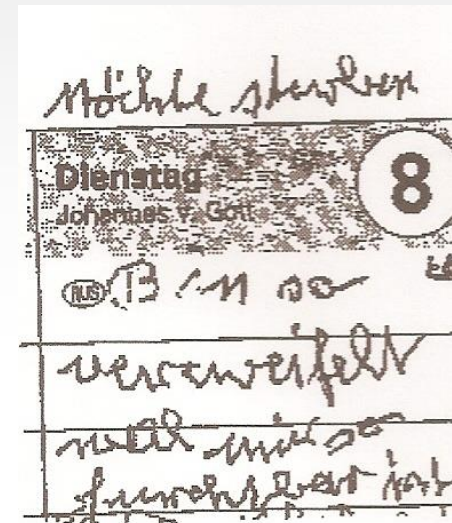 Möchte sterben
Dienstag 8
Johannes v. Gott
RUS 13 11 00
verzweifelt
weil mir so
furchtbar ist